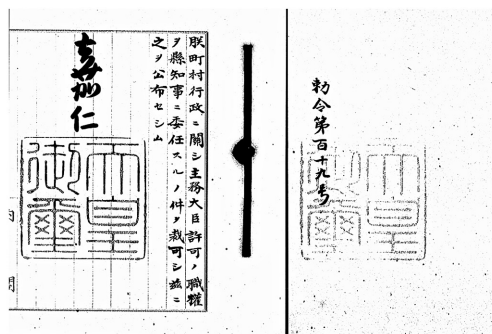 勅令第百十九号
朕町村行政ニ關シ主務大臣許可ノ職權
ヲ縣知事ニ委任スルノ件ヲ裁可シ茲ニ
之ヲ公布セシム
嘉仁
天皇
御璽
内
閣